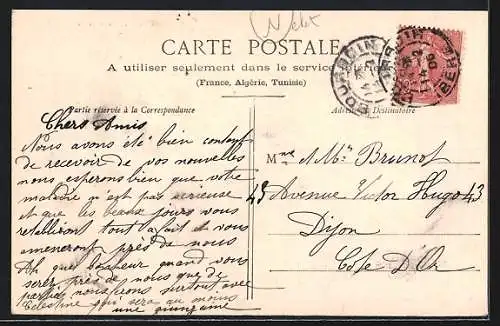 CARTE POSTALE
A utiliser seulement dans le service
(France, Algérie, Tunisie)
Partie réservée à la Correspondance
Adresse du Destinataire
Chers Amis
Nous avons été bien contents
de recevoir de vos nouvelles
nous esperons bien que votre
maladie n'est pas serieuse
et que les beaux jours vous
retabliront tout a fait et vous
ameneront près de nous
Ah quel bonheur quand vous
serez près de nous que de
parties nous ferons surtout avec
Celestine qui sera au moins
une quinzaine
Mme & Mr Brunot
43 Avenue Victor Hugo 43
Dijon
Cote D'Or